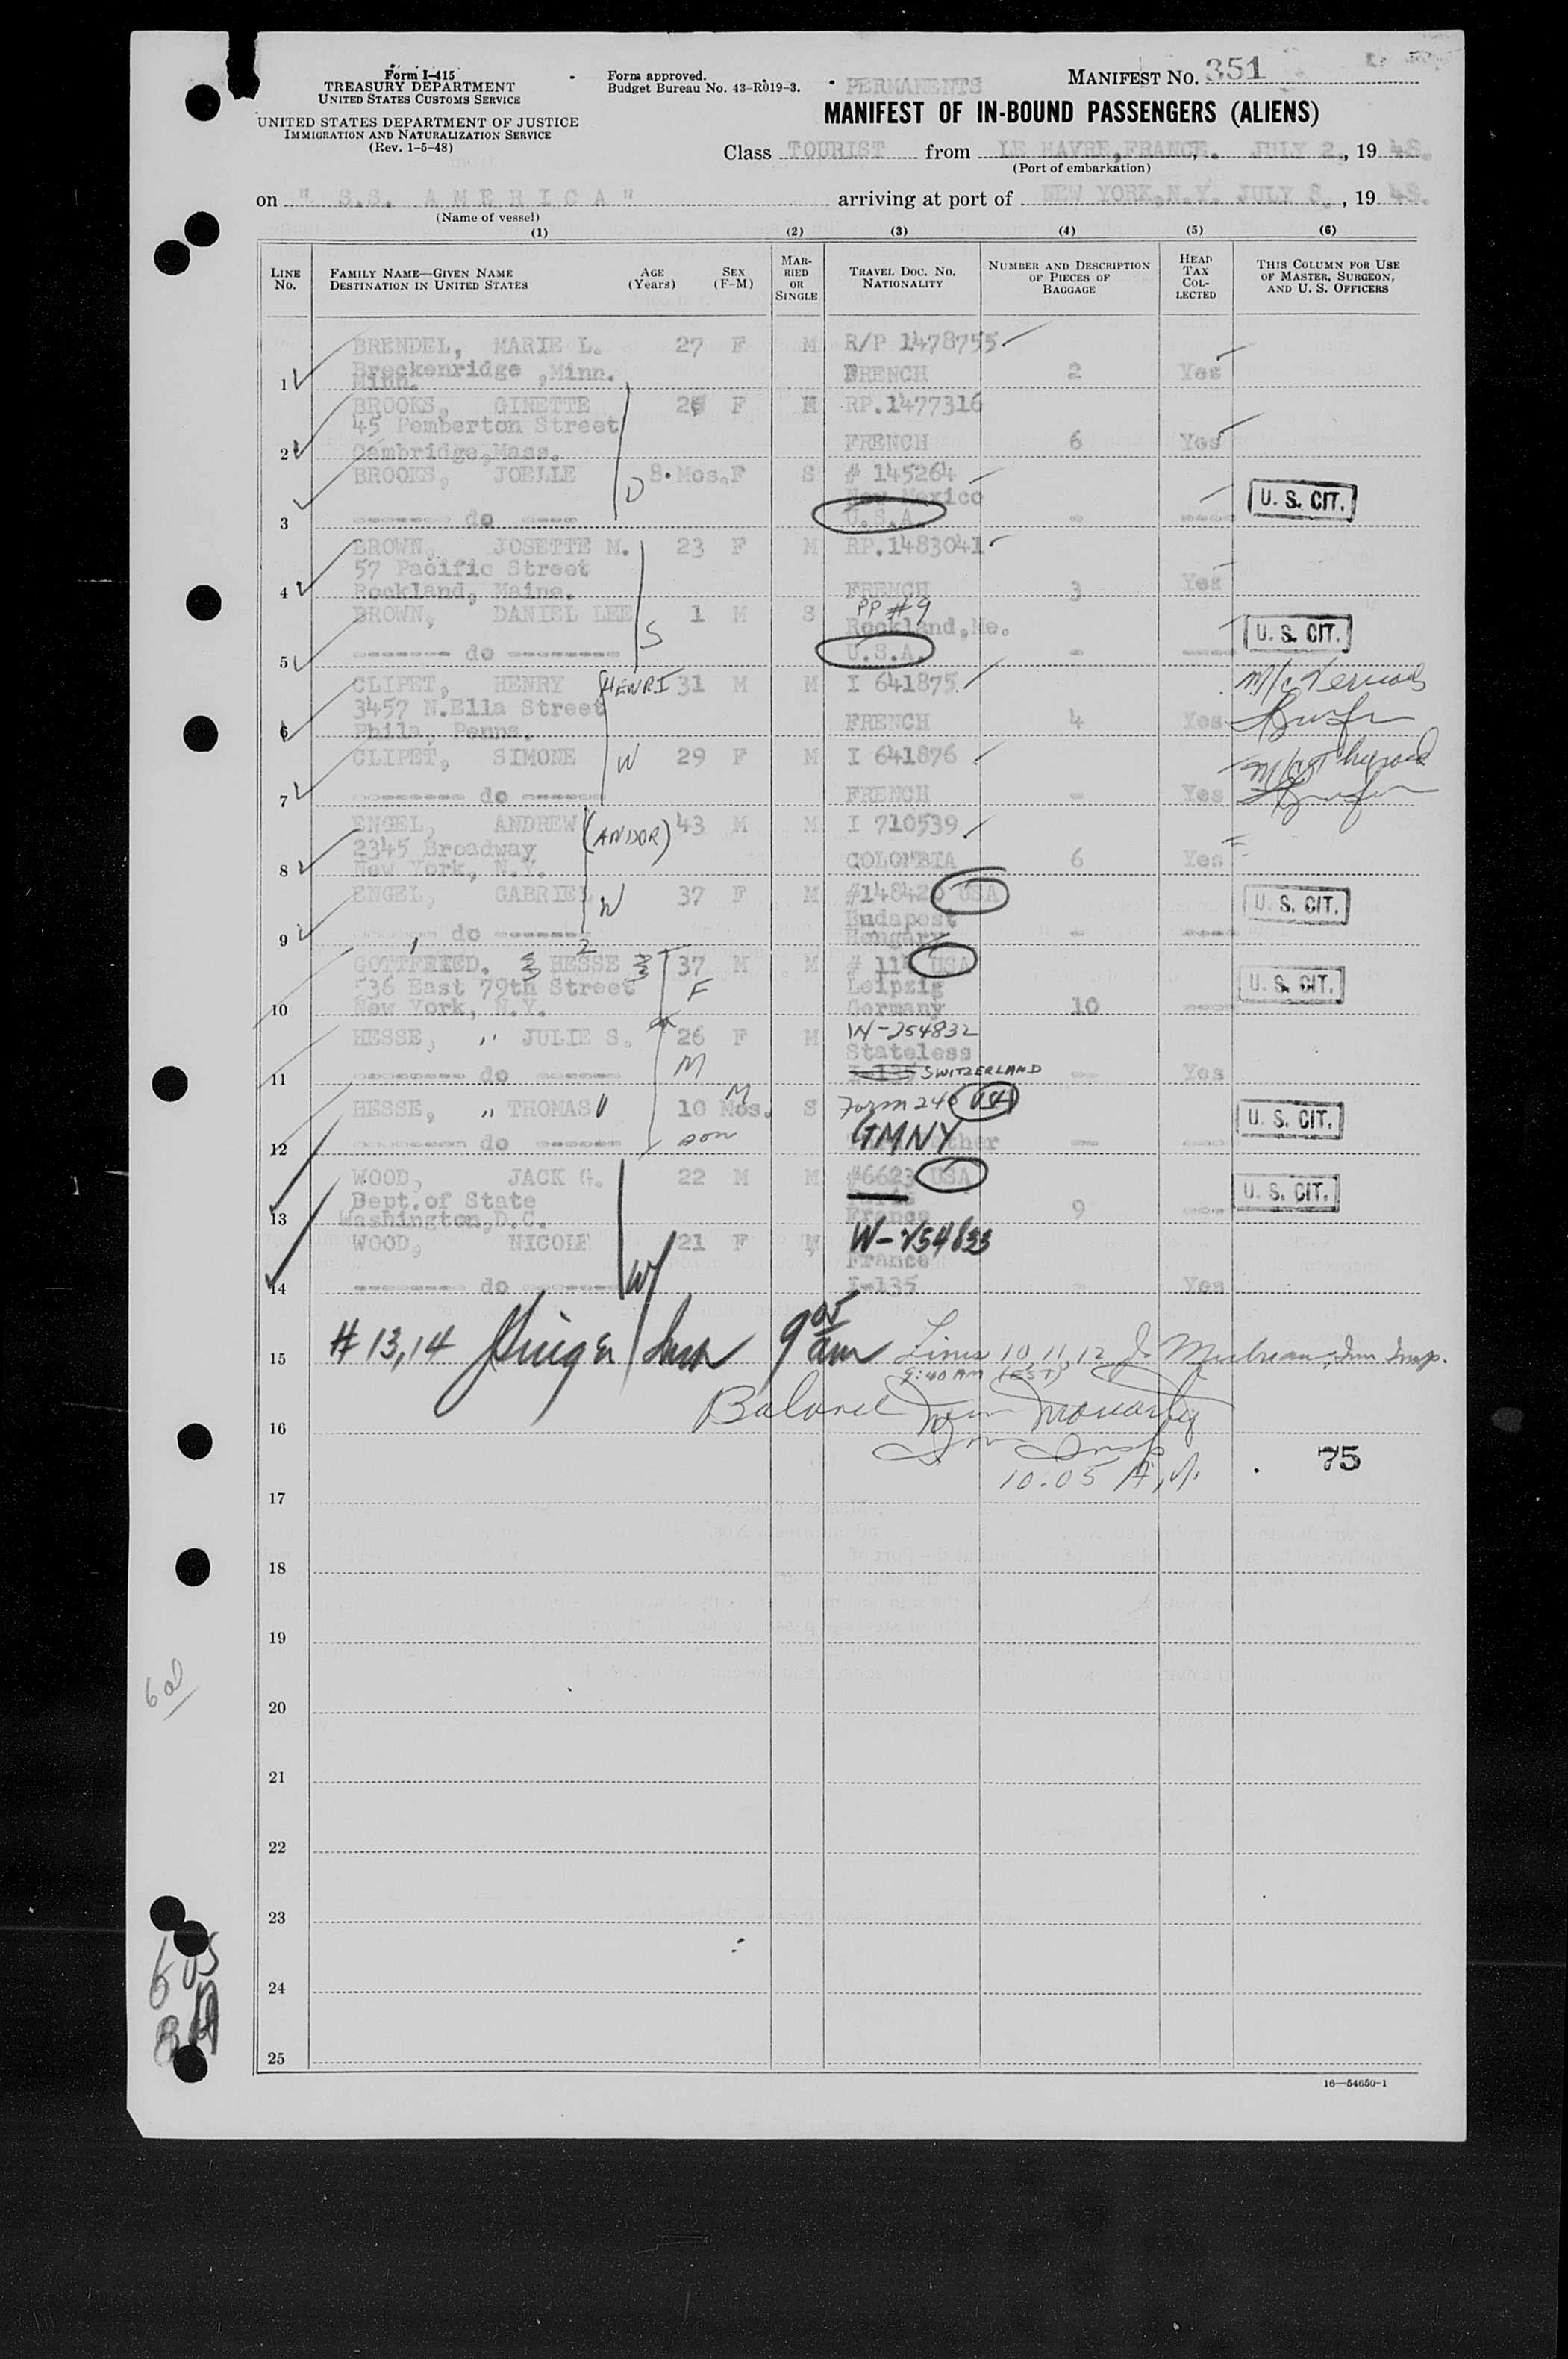 Form I-415
TREASURY DEPARTMENT
UNITED STATES CUSTOMS SERVICE
UNITED STATES DEPARTMENT OF JUSTICE
IMMIGRATION AND NATURALIZATION SERVICE
(Rev. 1-5-48)
Form approved.
Budget Bureau No. 43-R019-3.
PERMANENTS
MANIFEST NO. 351
MANIFEST OF IN-BOUND PASSENGERS (ALIENS)
Class TOURIST from LE HAVRE, FRANCE. JULY 2, 19 48.
(Port of embarkation)
on " S.S. A M E R I C A " arriving at port of NEW YORK, N.Y. JULY 8, 19 48.
(Name of vessel)
(1) (2) (3) (4) (5) (6)
LINE NO. FAMILY NAME—GIVEN NAME DESTINATION IN UNITED STATES AGE (Years) SEX (F-M) MARRIED OR SINGLE TRAVEL DOC. NO. NATIONALITY NUMBER AND DESCRIPTION OF PIECES OF BAGGAGE HEAD TAX COLLECTED THIS COLUMN FOR USE OF MASTER, SURGEON, AND U. S. OFFICERS
BRENDEL, MARIE L. 27 F M R/P 1478755
Breckenridge ,Minn. FRENCH 2 Yes
1 Minn.
BROOKS, GINETTE 26 F M RP.1477316
45 Pemberton Street
FRENCH 6 Yes
2 Cambridge,Mass.
BROOKS, JOELLE 8 Mos. F S # 145264
D New Mexico U. S. CIT.
3 ------- do ---- U.S.A. - ----
BROWN, JOSETTE M. 23 F M RP.1483041
57 Pacific Street
4 Rockland, Maine. FRENCH 3 Yes
BROWN, DANIEL LEE 1 M S PP #9
S Rockland,Me. U. S. CIT.
5 ------- do -------- U.S.A. - ----
CLIPET, HENRY HENRI 31 M M I 641875
3457 N.Ella Street
6 Phila, Penna. FRENCH 4 Yes
CLIPET, SIMONE W 29 F M I 641876
7 -------- do ------ FRENCH - Yes
ENGEL, ANDREW (ANDOR) 43 M M I 710539
2345 Broadway
8 New York, N.Y. COLOMBIA 6 Yes
ENGEL, GABRIEL W 37 F M #148420 USA
Budapest U. S. CIT.
9 ------- do ------- Hungary - ----
1 2
GOTTFRIED. HESSE 37 M M # 11 USA
36 East 79th Street F Leipzig U. S. CIT.
10 New York, N.Y. Germany 10 ----
HESSE, " JULIE S. 26 F M W-254832
M Stateless
11 -------- do ------ I-135 SWITZERLAND -- Yes
HESSE, " THOMAS 10 Mos. M S Form 240 USA
U. S. CIT.
12 -------- do ------ son GMNY -- ----
WOOD, JACK G. 22 M M #6623 USA
Dept.of State U. S. CIT.
13 Washington,D.C. France 9 ---
WOOD, NICOLE 21 F M W-254833
France
14 -------- do ------- W I-135 - Yes
15 # 13, 14 9 05 am Lines 10, 11, 12 Imm Insp.
9:40 AM (EST)
16 Balance
Imm Insp
10:05 A.M. 75
17
18
19
20
21
22
23
24
25
16—54650-1